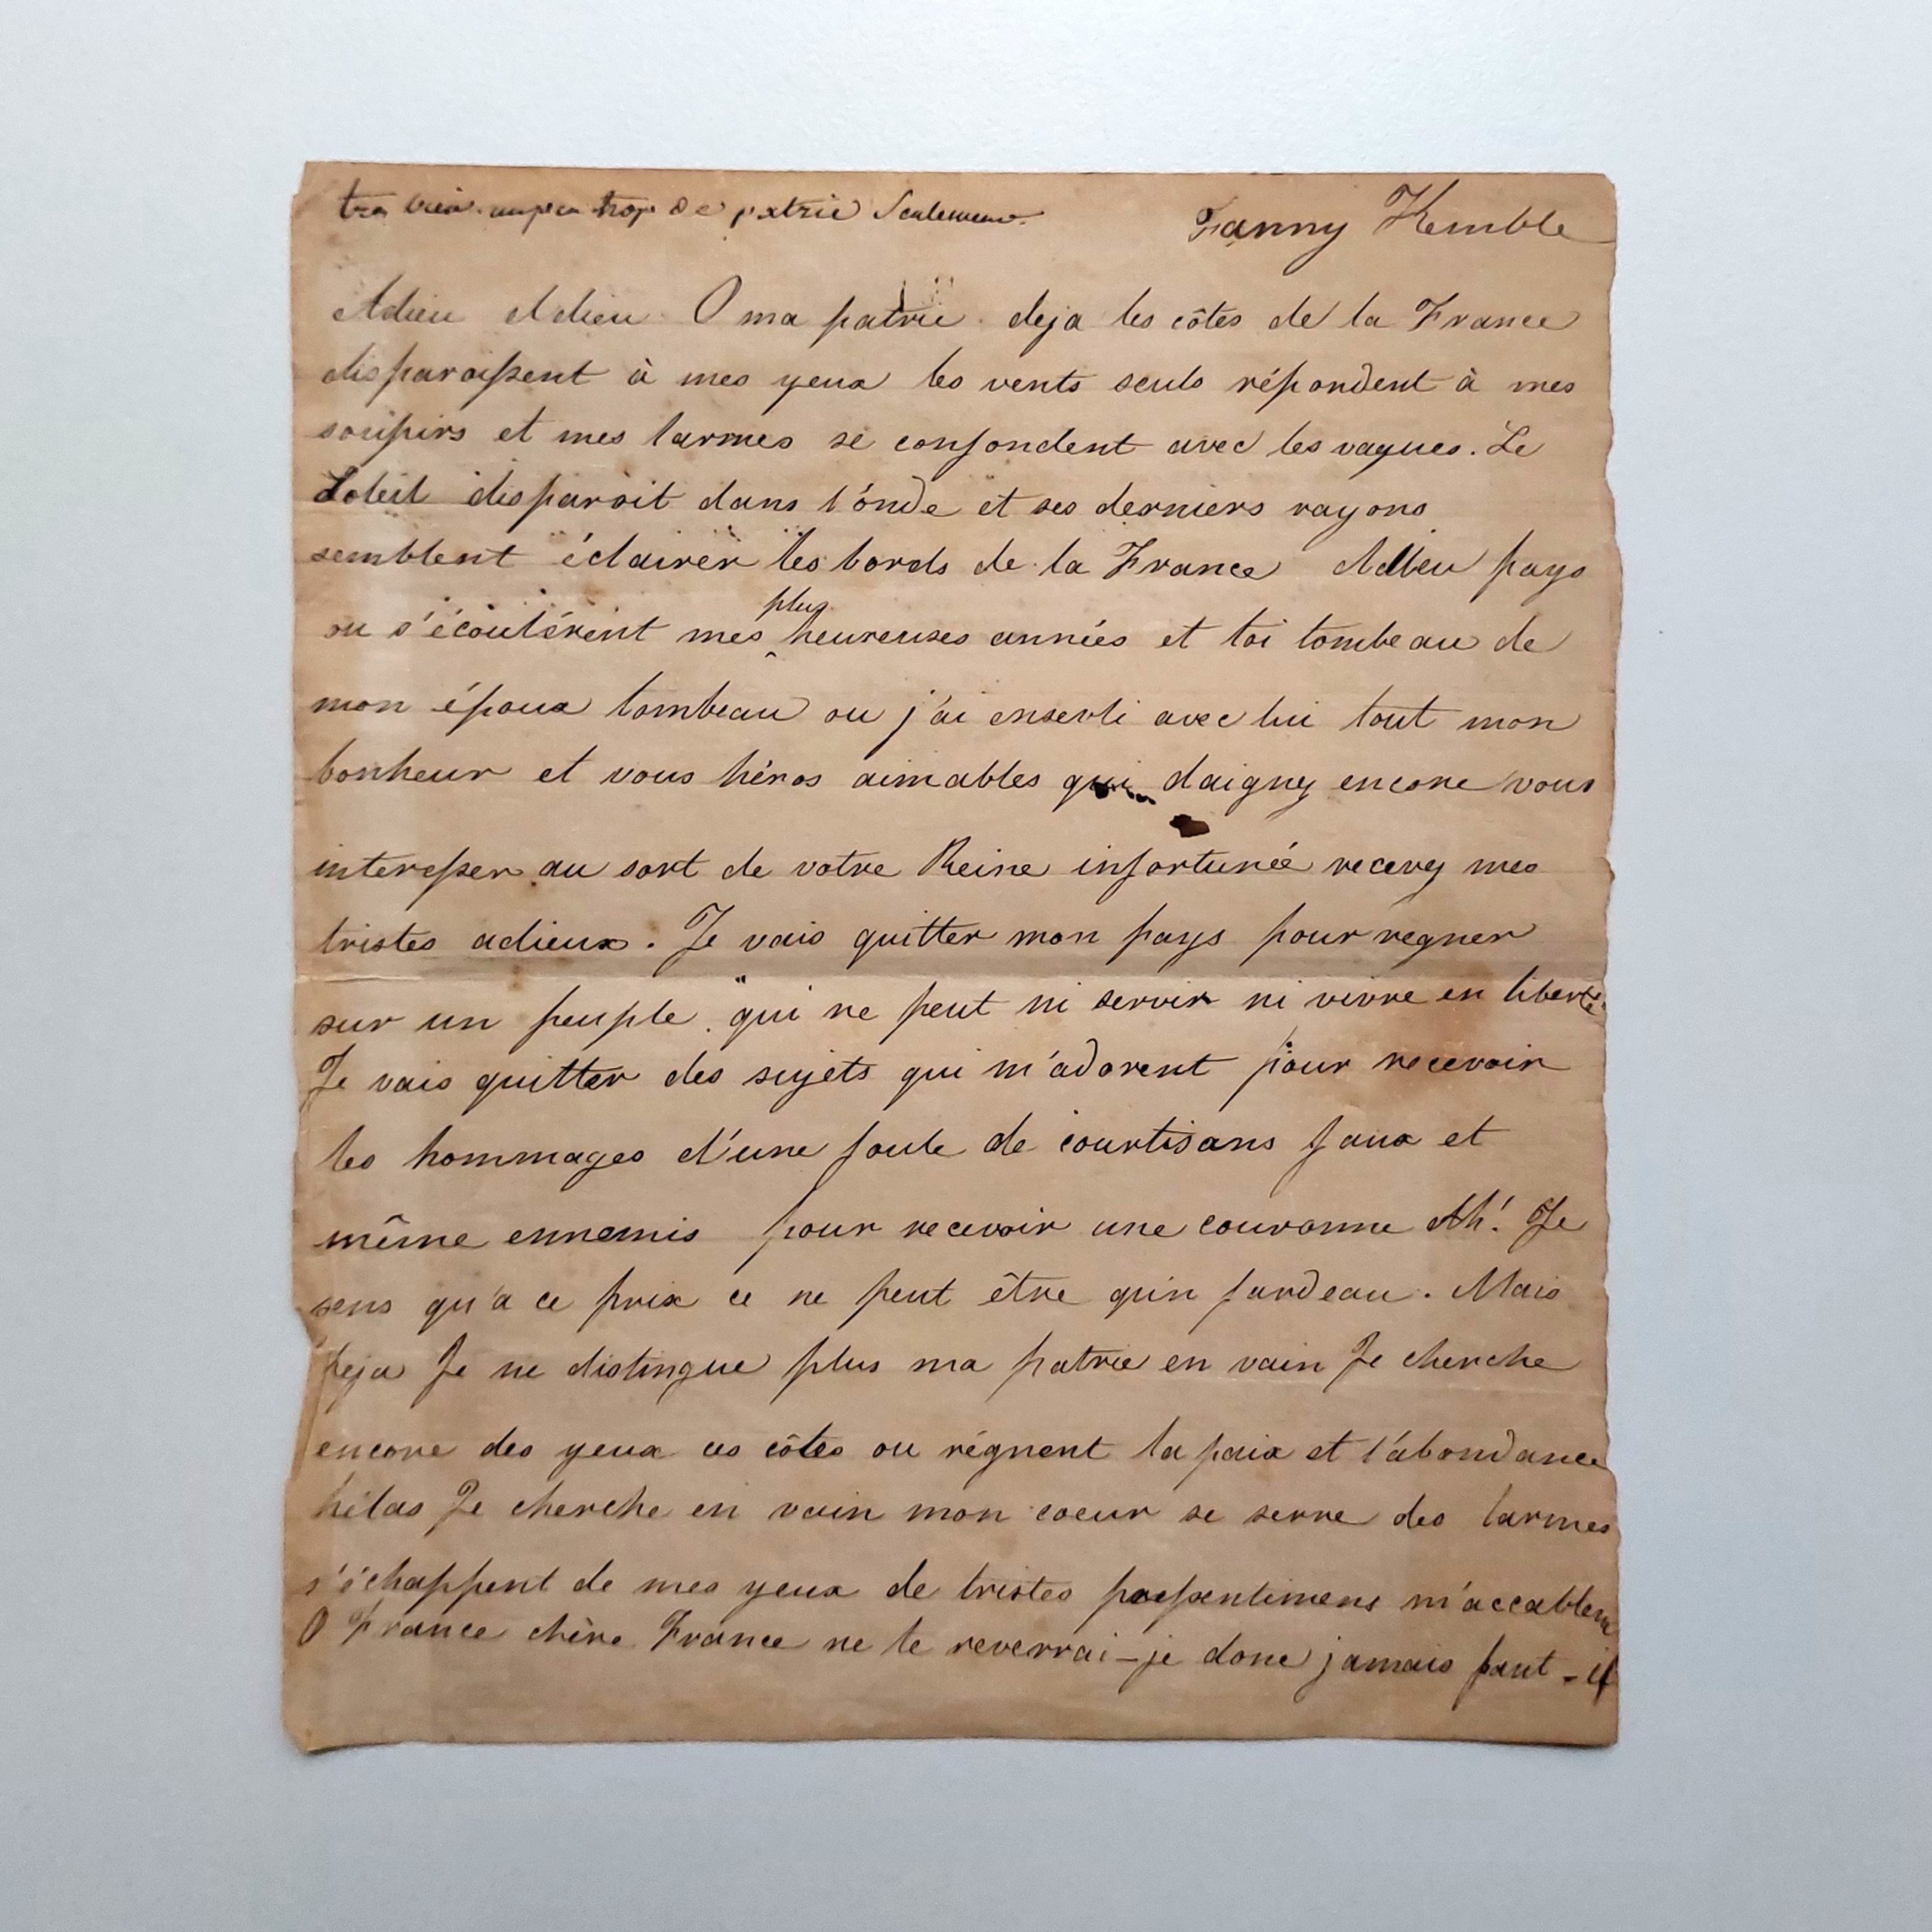 tres bien un peu trop de patrie Seulement.
Fanny Kemble
Adieu Adieu O ma patrie deja les côtes de la France
disparaissent à mes yeux les vents seuls répondent à mes
soupirs et mes larmes se confondent avec les vagues. Le
Soleil disparoit dans l'onde et ses derniers rayons
semblent éclairer les bords de la France Adieu pays
plus
ou s'écoulérent mes heureuses années et toi tombeau de
mon époux tombeau ou j'ai enseveli avec lui tout mon
bonheur et vous héros aimables qui daignez encore vous
interesser au sort de votre Reine infortunée recevez mes
tristes adieux. Je vais quitter mon pays pour regner
sur un peuple "qui ne peut ni servir ni vivre en liberté.
Je vais quitter des sujets qui m'adorent pour recevoir
les hommages d'une foule de courtisans faux et
même ennemis pour recevoir une couronne Ah! Je
sens qu'a ce prix ce ne peut être qu'in fardeau. Mais
deja Je ne distingue plus ma patrie en vain Je cherche
encore des yeux ces côtes ou régnent la paix et l'abondance
hélas Je cherche en vain mon coeur se serre des larmes
s'échappent de mes yeux de tristes pressentimens m'accablent
O France chère France ne te reverrai-je donc jamais faut-il